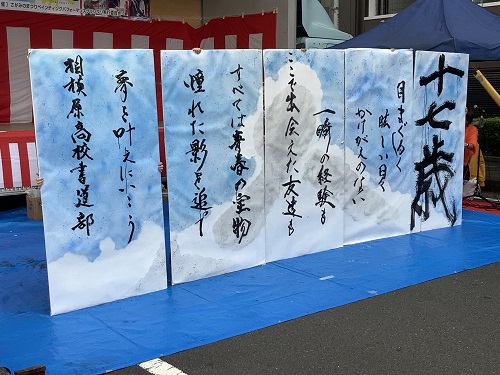 十七歳
目まぐるしく
眩しい日々
かけがえのない
一瞬の経験も
ここで出会えた友達も
すべては青春の宝物
憧れた影を追い
夢を叶えにいこう
相模原高校書道部